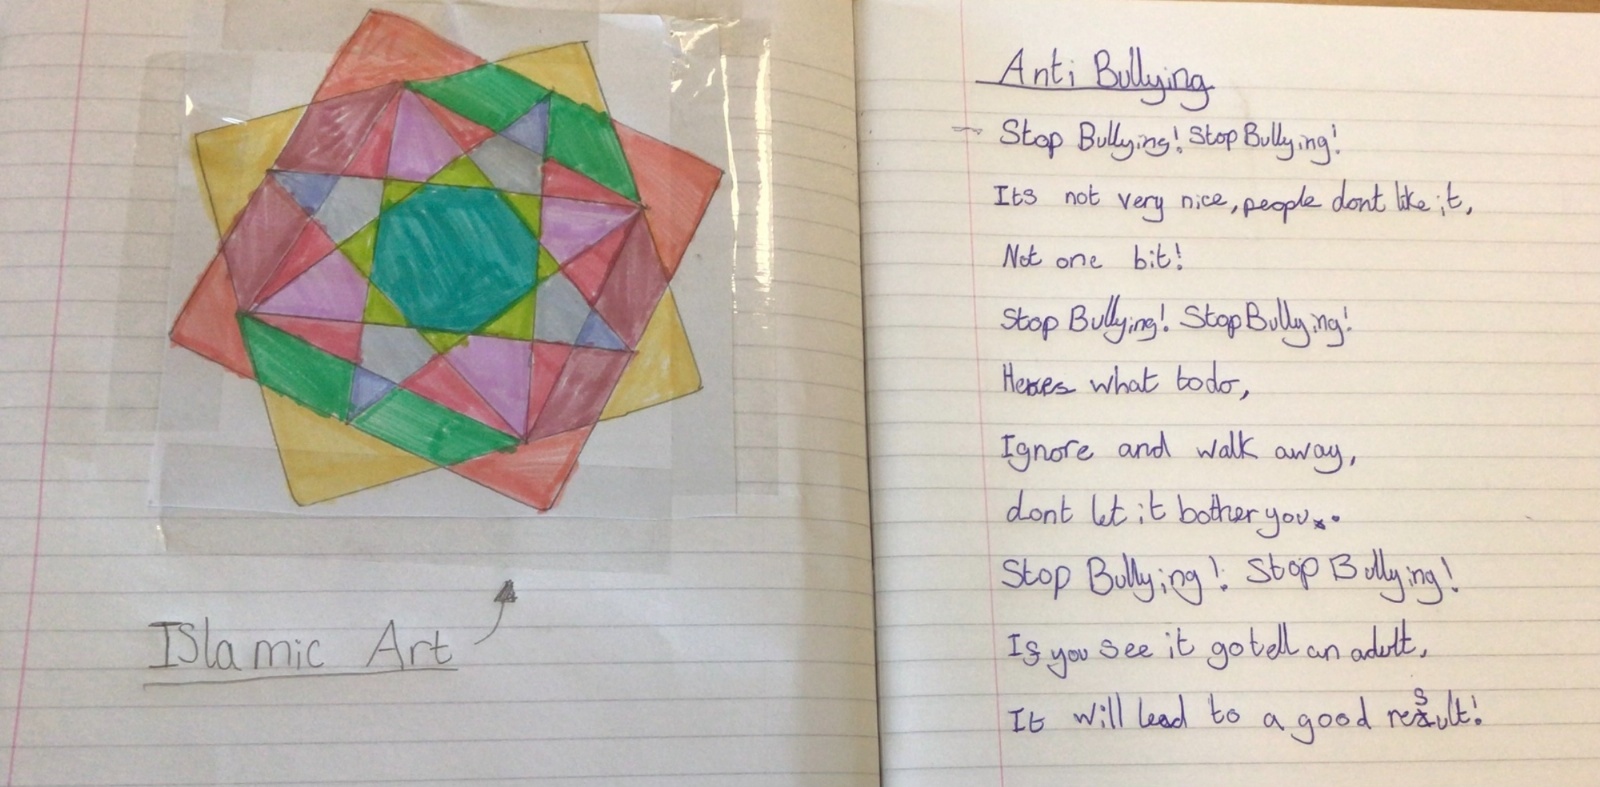 Islamic Art
Anti Bullying
Stop Bullying! Stop Bullying!
Its not very nice, people dont like it,
Not one bit!
Stop Bullying! Stop Bullying!
Heres what to do,
Ignore and walk away,
dont let it bother you.
Stop Bullying! Stop Bullying!
If you see it go tell an adult,
It will lead to a good result!